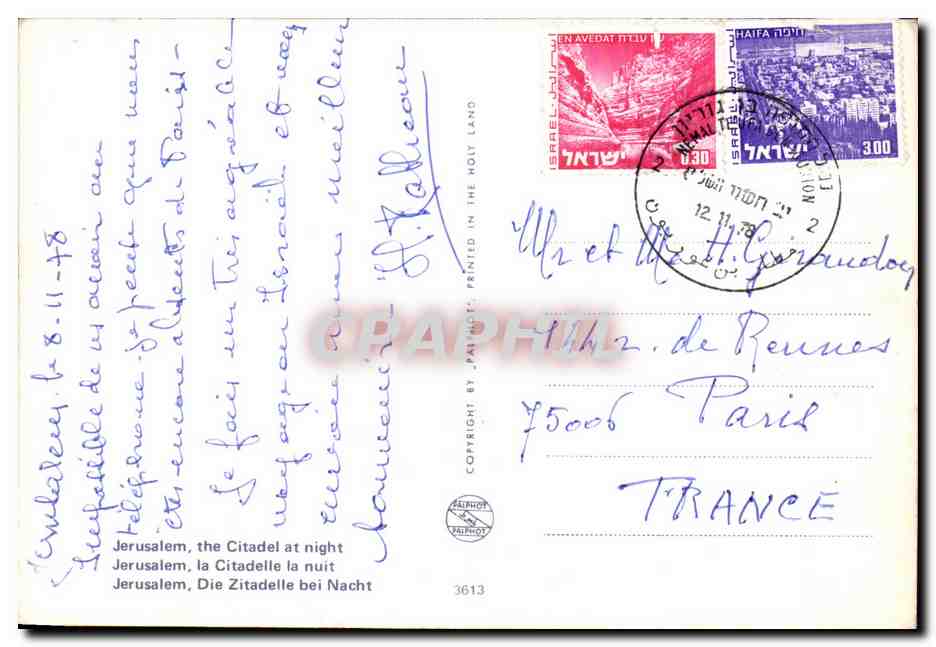 Jerusalem, le 8-11-78
Impossible de vous avoir au
téléphone. je pense que vous
êtes encore absents de Paris -
Je fais un très agréable
voyage en Israël et vous
envoie à tous mon meilleur
souvenir
EN AVEDAT עין עבדת
ISRAEL - اسرائيل
ישראל
0.30
HAIFA חיפה
ISRAEL اسرائيل
ישראל
3.00
2
12.11.78
2
Mr et Me H.
de Rennes
75006 Paris
FRANCE
COPYRIGHT BY „PALPHOT", PRINTED IN THE HOLY LAND
CPAPHIL
PALPHOT
PALPHOT
Jerusalem, the Citadel at night
Jerusalem, la Citadelle la nuit
Jerusalem, Die Zitadelle bei Nacht
3613